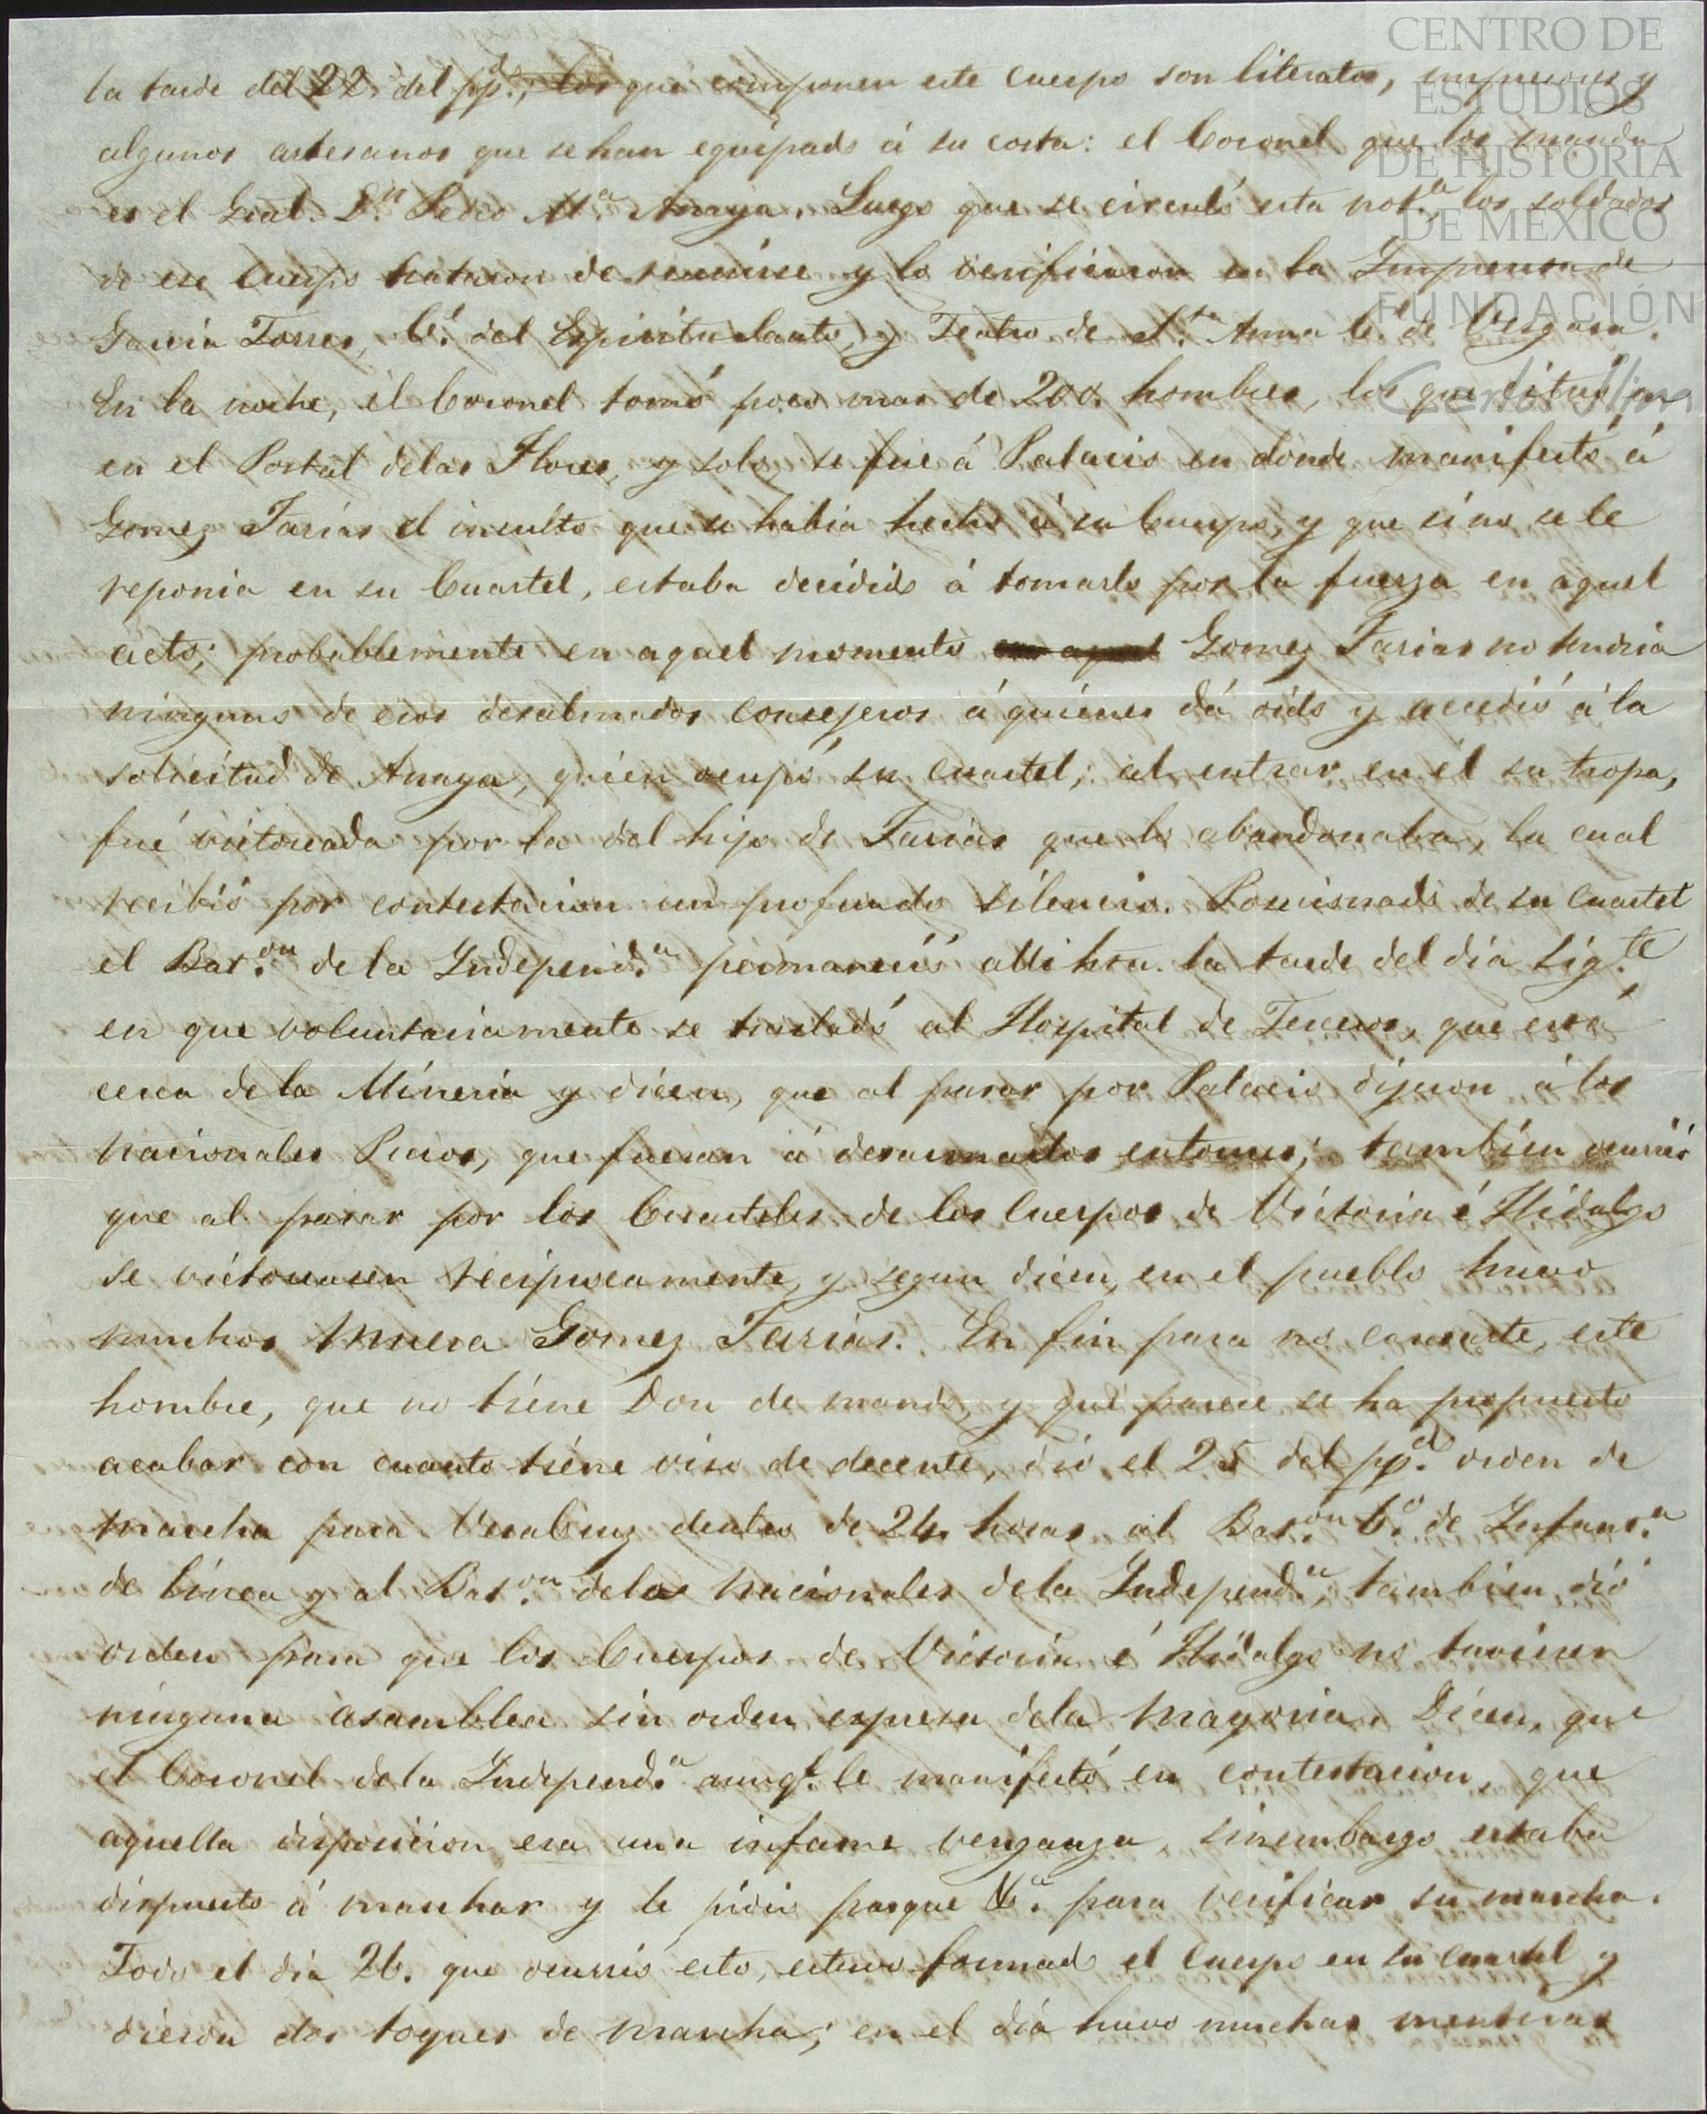 CENTRO DE
ESTUDIOS
DE HISTORIA
DE MÉXICO
FUNDACIÓN
Carlos Slim
la tarde del 22. del pp.do, los que componen este cuerpo son literatos, impresores y
algunos artesanos que se han equipado á su costa: el Coronel que los manda
es el Gral. D.n Pedro M.a Anaya. Luego que se circuló esta not.a los soldados
de ese Cuerpo trataron de reunirse y lo verificaron en la Imprenta de
Garcia Torres, C.e del Espiritu Santo, y Teatro de S.ta Anna C.e de Vergara.
En la noche, el Coronel tomó poco mas de 200. hombres, los que situó
en el Portal delas Flores, y solo, se fue á Palacio en donde manifestó á
Gomez Farias el insulto que se habia hecho á su Cuerpo, y que si no se le
reponia en su Cuartel, estaba decidido á tomarlo por la fuerza en aquel
acto; probablemente en aquel momento Gomez Farias no tendria
ninguno de esos desalmados consejeros á quienes dá oido y accedió á la
solicitud de Anaya, quien ocupó su cuartel; al entrar en él su tropa,
fué victoreada por la del hijo de Farias que lo abandonaba, la cual
recibió por contestacion un profundo silencio. Posicionado de su Cuartel
el Bat.on de la Independ.a permaneció alli hta. la tarde del dia sig.te
en que voluntariamente se trasladó al Hospital de Terceros, que está
cerca dela Mineria y dicen, que al pasar por Palacio dijeron á los
nacionales Picios, que fueran á desarmarlos entonces; tambien ocurrió
que al pasar por los Cuarteles de los Cuerpos de Victoria é Hidalgo
se victorearon reciprocamente, y segun dicen, en el pueblo huvo
muchos muera Gomez Farias. En fin para no cansarte, este
hombre, que no tiene Don de mando, y que parece se ha propuesto
acabar con cuanto tiene viso de decente, dió el 25 del pp.do orden de
marcha para VeraCruz dentro de 24 horas al Bat.on 6.o de Infant.a
de linea y al Bat.on delos nacionales dela Independ.a; tambien dió
orden para que los Cuerpos de Victoria é Hidalgo no tuviesen
ninguna asamblea sin orden espresa dela Mayoria. Dicen, que
el Coronel dela Independ.a aunq.e le manifestó en contestacion, que
aquella disposicion era una infame venganza, sinembargo estaba
dispuesto á marchar y le pidió parque &.a para verificar su marcha.
Todo el dia 26. que ocurrió esto, estuvo formado el Cuerpo en su cuartel y
dieron dos toques de marcha; en el dia huvo muchas mentiras